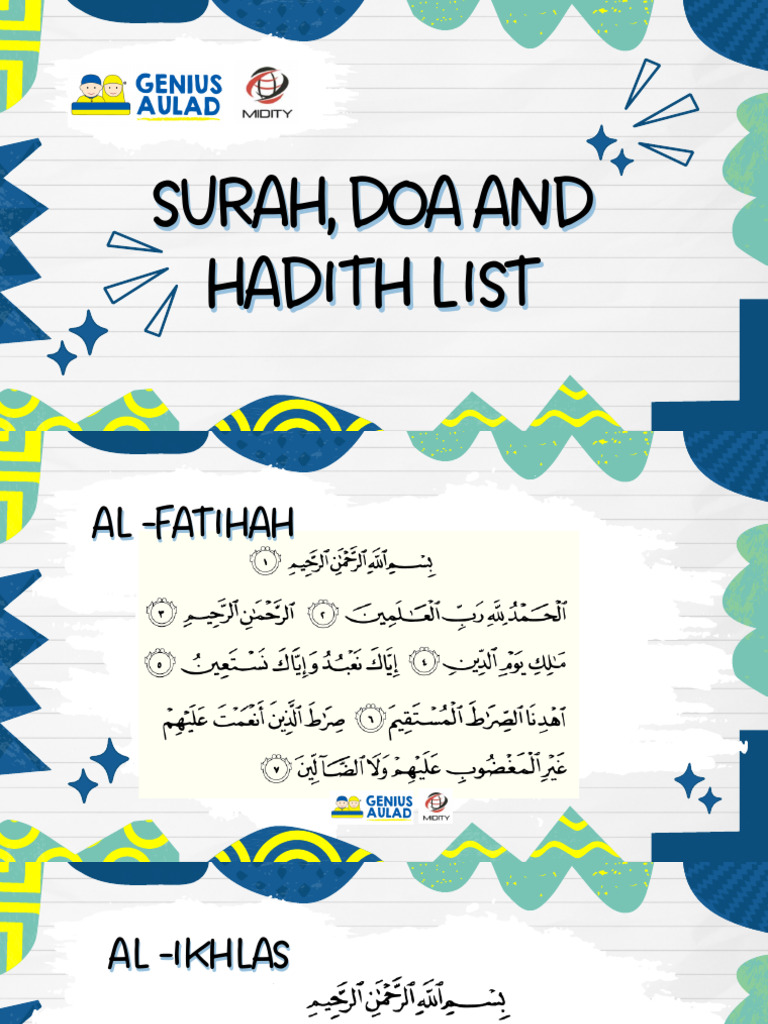 GENIUS
AULAD
MIDITY
SURAH, DOA AND
HADITH LIST
AL -FATIHAH
بِسْمِ ٱللَّهِ ٱلرَّحْمَٰنِ ٱلرَّحِيمِ ١
ٱلْحَمْدُ لِلَّهِ رَبِّ ٱلْعَٰلَمِينَ ٢ ٱلرَّحْمَٰنِ ٱلرَّحِيمِ ٣
مَٰلِكِ يَوْمِ ٱلدِّينِ ٤ إِيَّاكَ نَعْبُدُ وَإِيَّاكَ نَسْتَعِينُ ٥
ٱهْدِنَا ٱلصِّرَٰطَ ٱلْمُسْتَقِيمَ ٦ صِرَٰطَ ٱلَّذِينَ أَنْعَمْتَ عَلَيْهِمْ
غَيْرِ ٱلْمَغْضُوبِ عَلَيْهِمْ وَلَا ٱلضَّآلِّينَ ٧
GENIUS
AULAD
MIDITY
AL -IKHLAS
بِسْمِ ٱللَّهِ ٱلرَّحْمَٰنِ ٱلرَّحِيمِ